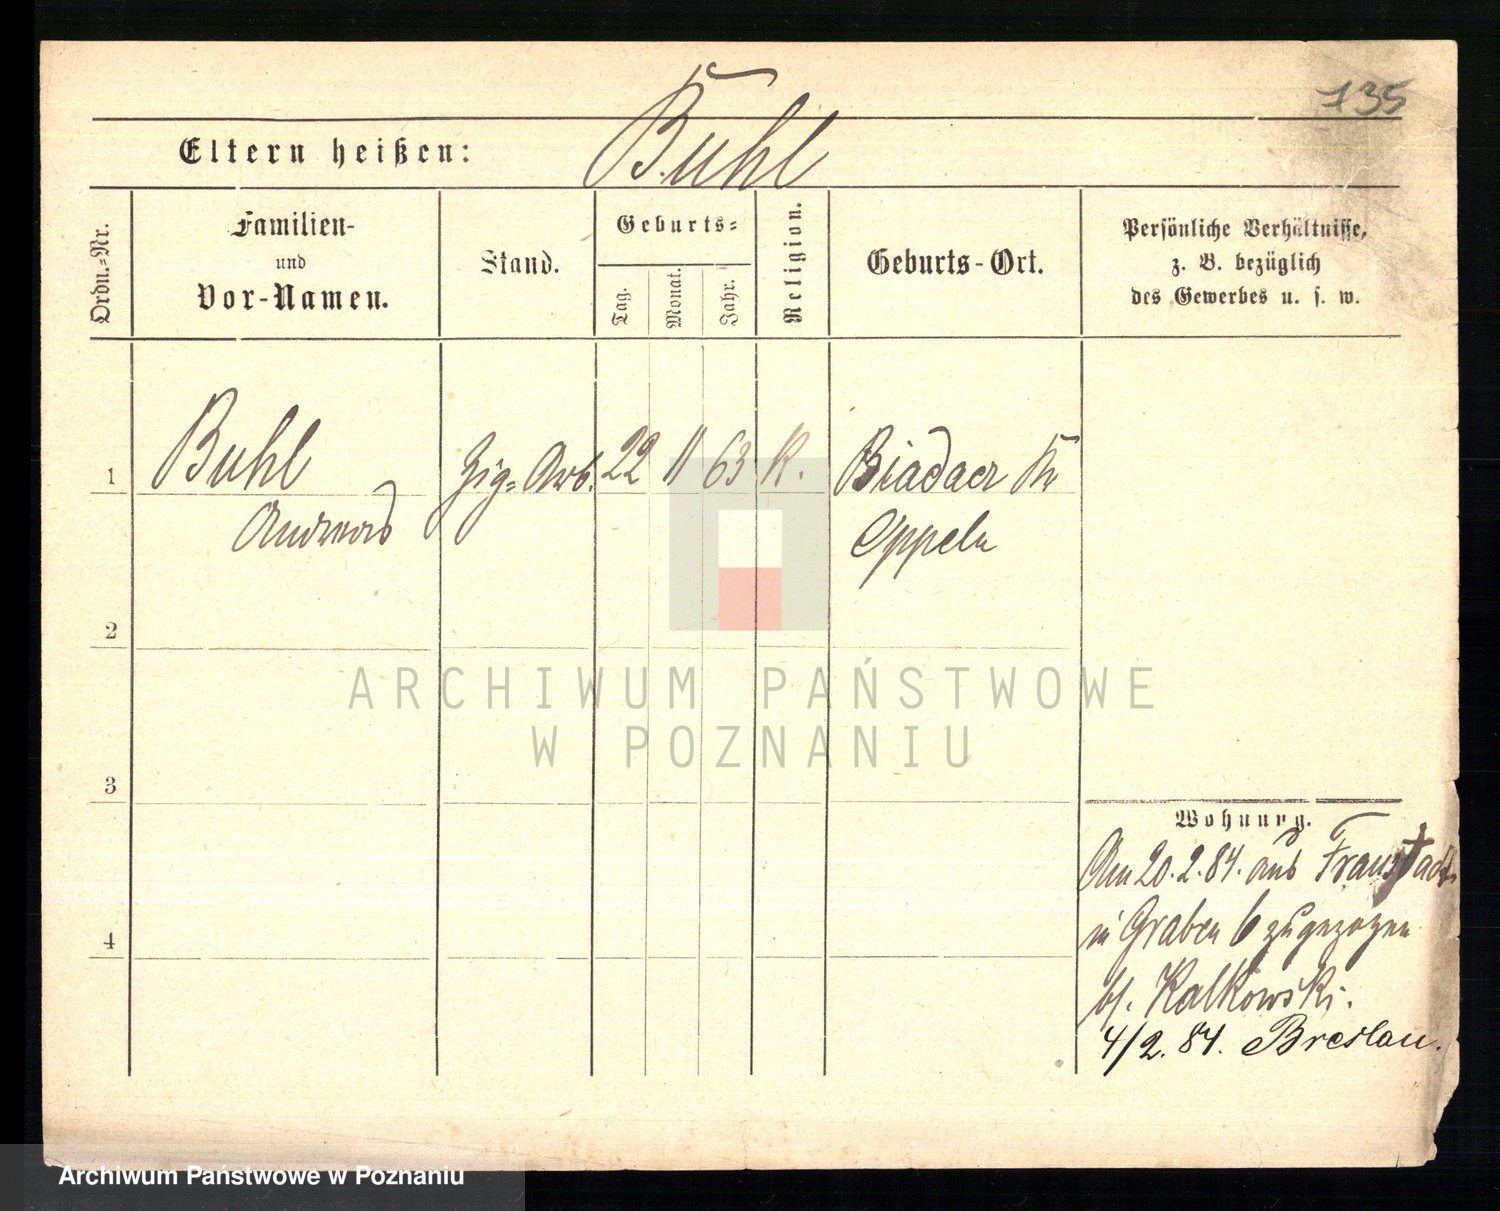 135
Eltern heißen: Buhl
Ordn.-Nr.
Familien-
und
Vor-Namen.
Stand.
Geburts-
Tag. Monat. Jahr.
Religion.
Geburts-Ort.
Persönliche Verhältnisse,
z. B. bezüglich
des Gewerbes u. s. w.
1 Buhl Zig-Arb. 22 11 63 K. Biadacz Kr
Andreas Oppeln
2
ARCHIWUM PAŃSTWOWE
W POZNANIU
3
Wohnung.
Am 20.2.84. aus Fraustadt
in Graben 6 zugezogen
4
b/. Kalkowski.
4/2. 84. Breslau.
Archiwum Państwowe w Poznaniu